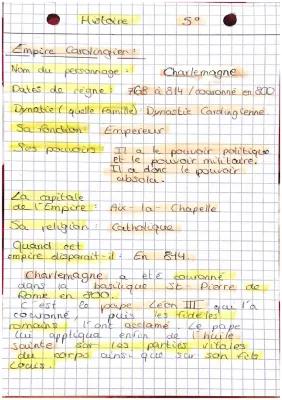 Histoire 5°
Empire Carolingien :
Nom du personnage : Charlemagne
Dates de règne : 768 à 814 / couronné en 800
Dynastie (quelle famille) Dynastie Carolingienne
Sa fonction : Empereur
Ses pouvoirs : Il a le pouvoir politique
et le pouvoir militaire.
Il a donc le pouvoir
absolu.
La capitale
de l'Empire : Aix-la-Chapelle
Sa religion : Catholique
Quand cet
empire disparait-il : En 814.
Charlemagne a été couronné
dans la basilique St-Pierre de
Rome en 800.
C'est le pape Léon III qui l'a
couronné, puis les fidèles
romains l'ont acclamé. Le pape
lui appliqua enfin de l'huile
sainte sur les parties vitales
du corps ainsi que sur son fils
Louis.